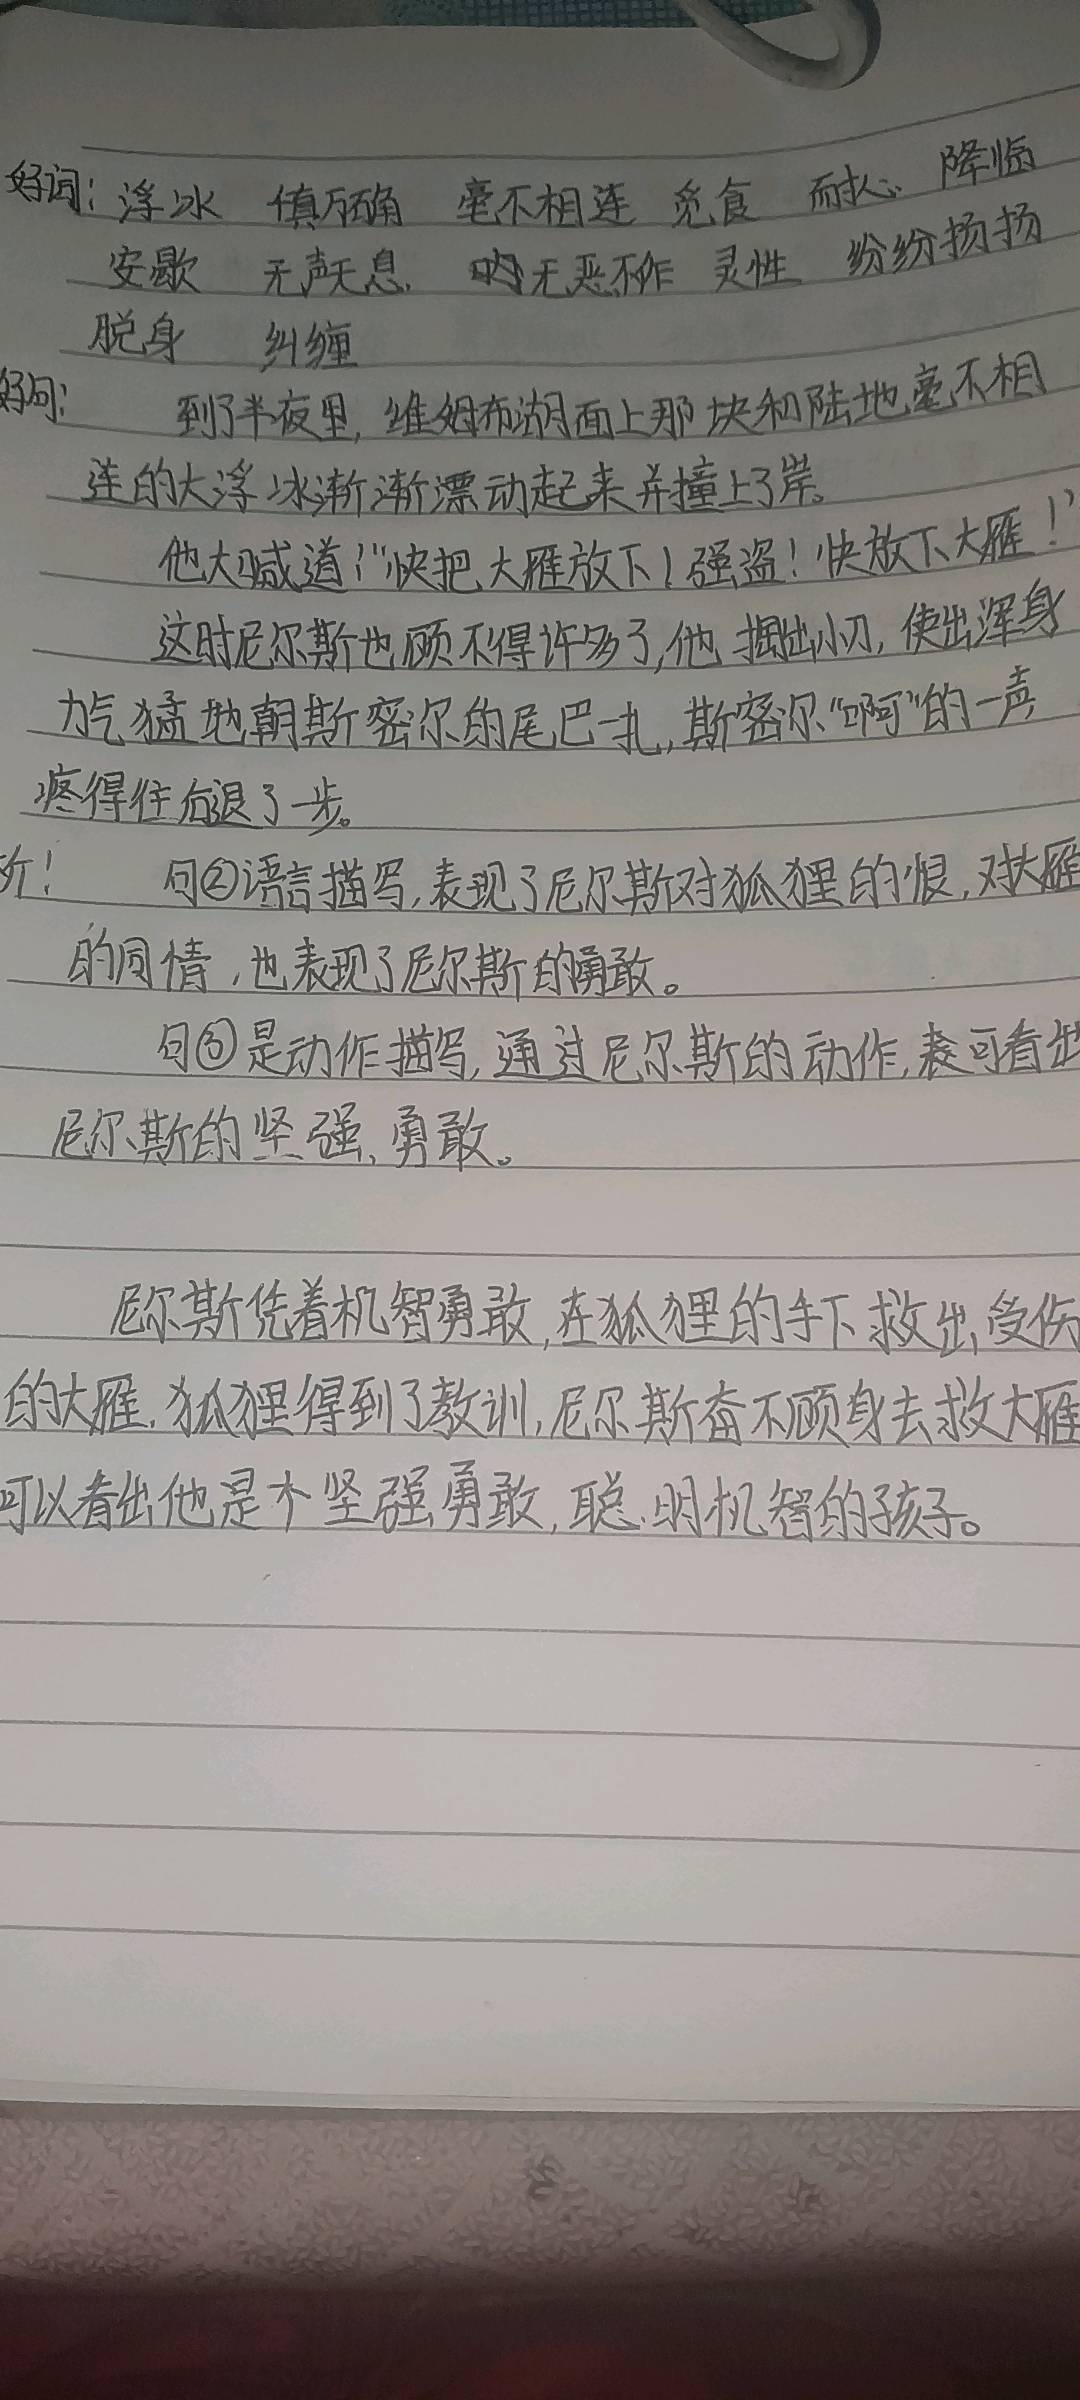 好词：浮冰 慎万确 毫不相连 觅食 耐心 降临
安歇 无声无息 无恶不作 灵性 纷纷扬扬
脱身 纠缠
好句： 到了半夜里，维姆布湖面上那块和陆地毫不相
连的大浮冰渐渐漂动起来并撞上了岸。
他大喊道！“快把大雁放下！强盗！快放下大雁！”
这时尼尔斯也顾不得许多了，他掏出小刀，使出浑身
力气猛地朝斯密尔的尾巴一扎，斯密尔“啊”的一声
疼得往后退了一步。
价！ 句②语言描写，表现了尼尔斯对狐狸的恨，对大雁
的同情，也表现了尼尔斯的勇敢。
句③是动作描写，通过尼尔斯的动作，表可看出
尼尔斯的坚强、勇敢。
尼尔斯凭着机智勇敢，在狐狸的手下救出受伤
的大雁，狐狸得到了教训，尼尔斯奋不顾身去救大雁
可以看出他是个坚强勇敢，聪明机智的孩子。